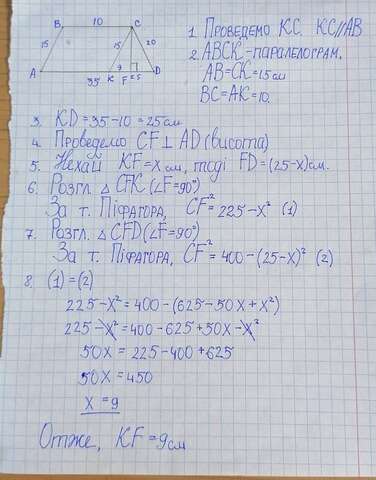 B 10 C
15 15 20
A 35 K 9 F 25 D
1. Проведемо KC. KC//AB
2. ABCK-паралелограм.
AB=CK=15см
BC=AK=10.
3. KD=35-10=25см
4. Проведемо CF⊥AD (висота)
5. Нехай KF=xсм, тоді FD=(25-x)см.
6. Розгл. △CFK (∠F=90°)
За т. Піфагора, CF²=225-x² (1)
7. Розгл. △CFD (∠F=90°)
За т. Піфагора, CF²=400-(25-x)² (2)
8. (1)=(2)
225-x²=400-(625-50x+x²)
225-x²=400-625+50x-x²
50x=225-400+625
50x=450
x=9
Отже, KF=9см